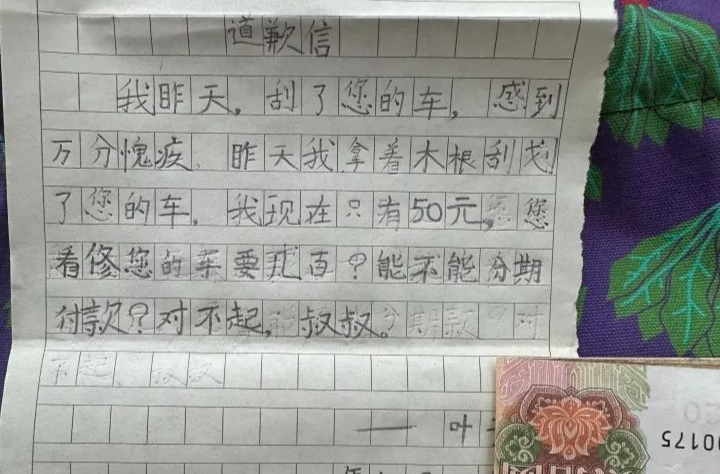 道歉信
我昨天，刮了您的车，感到
万分愧疚。昨天我拿着木根刮划
了您的车。我现在只有50元，您
看修您的车要百？能不能分期
付款？对不起，叔叔。期款？对
不起，叔叔
——叶
0175